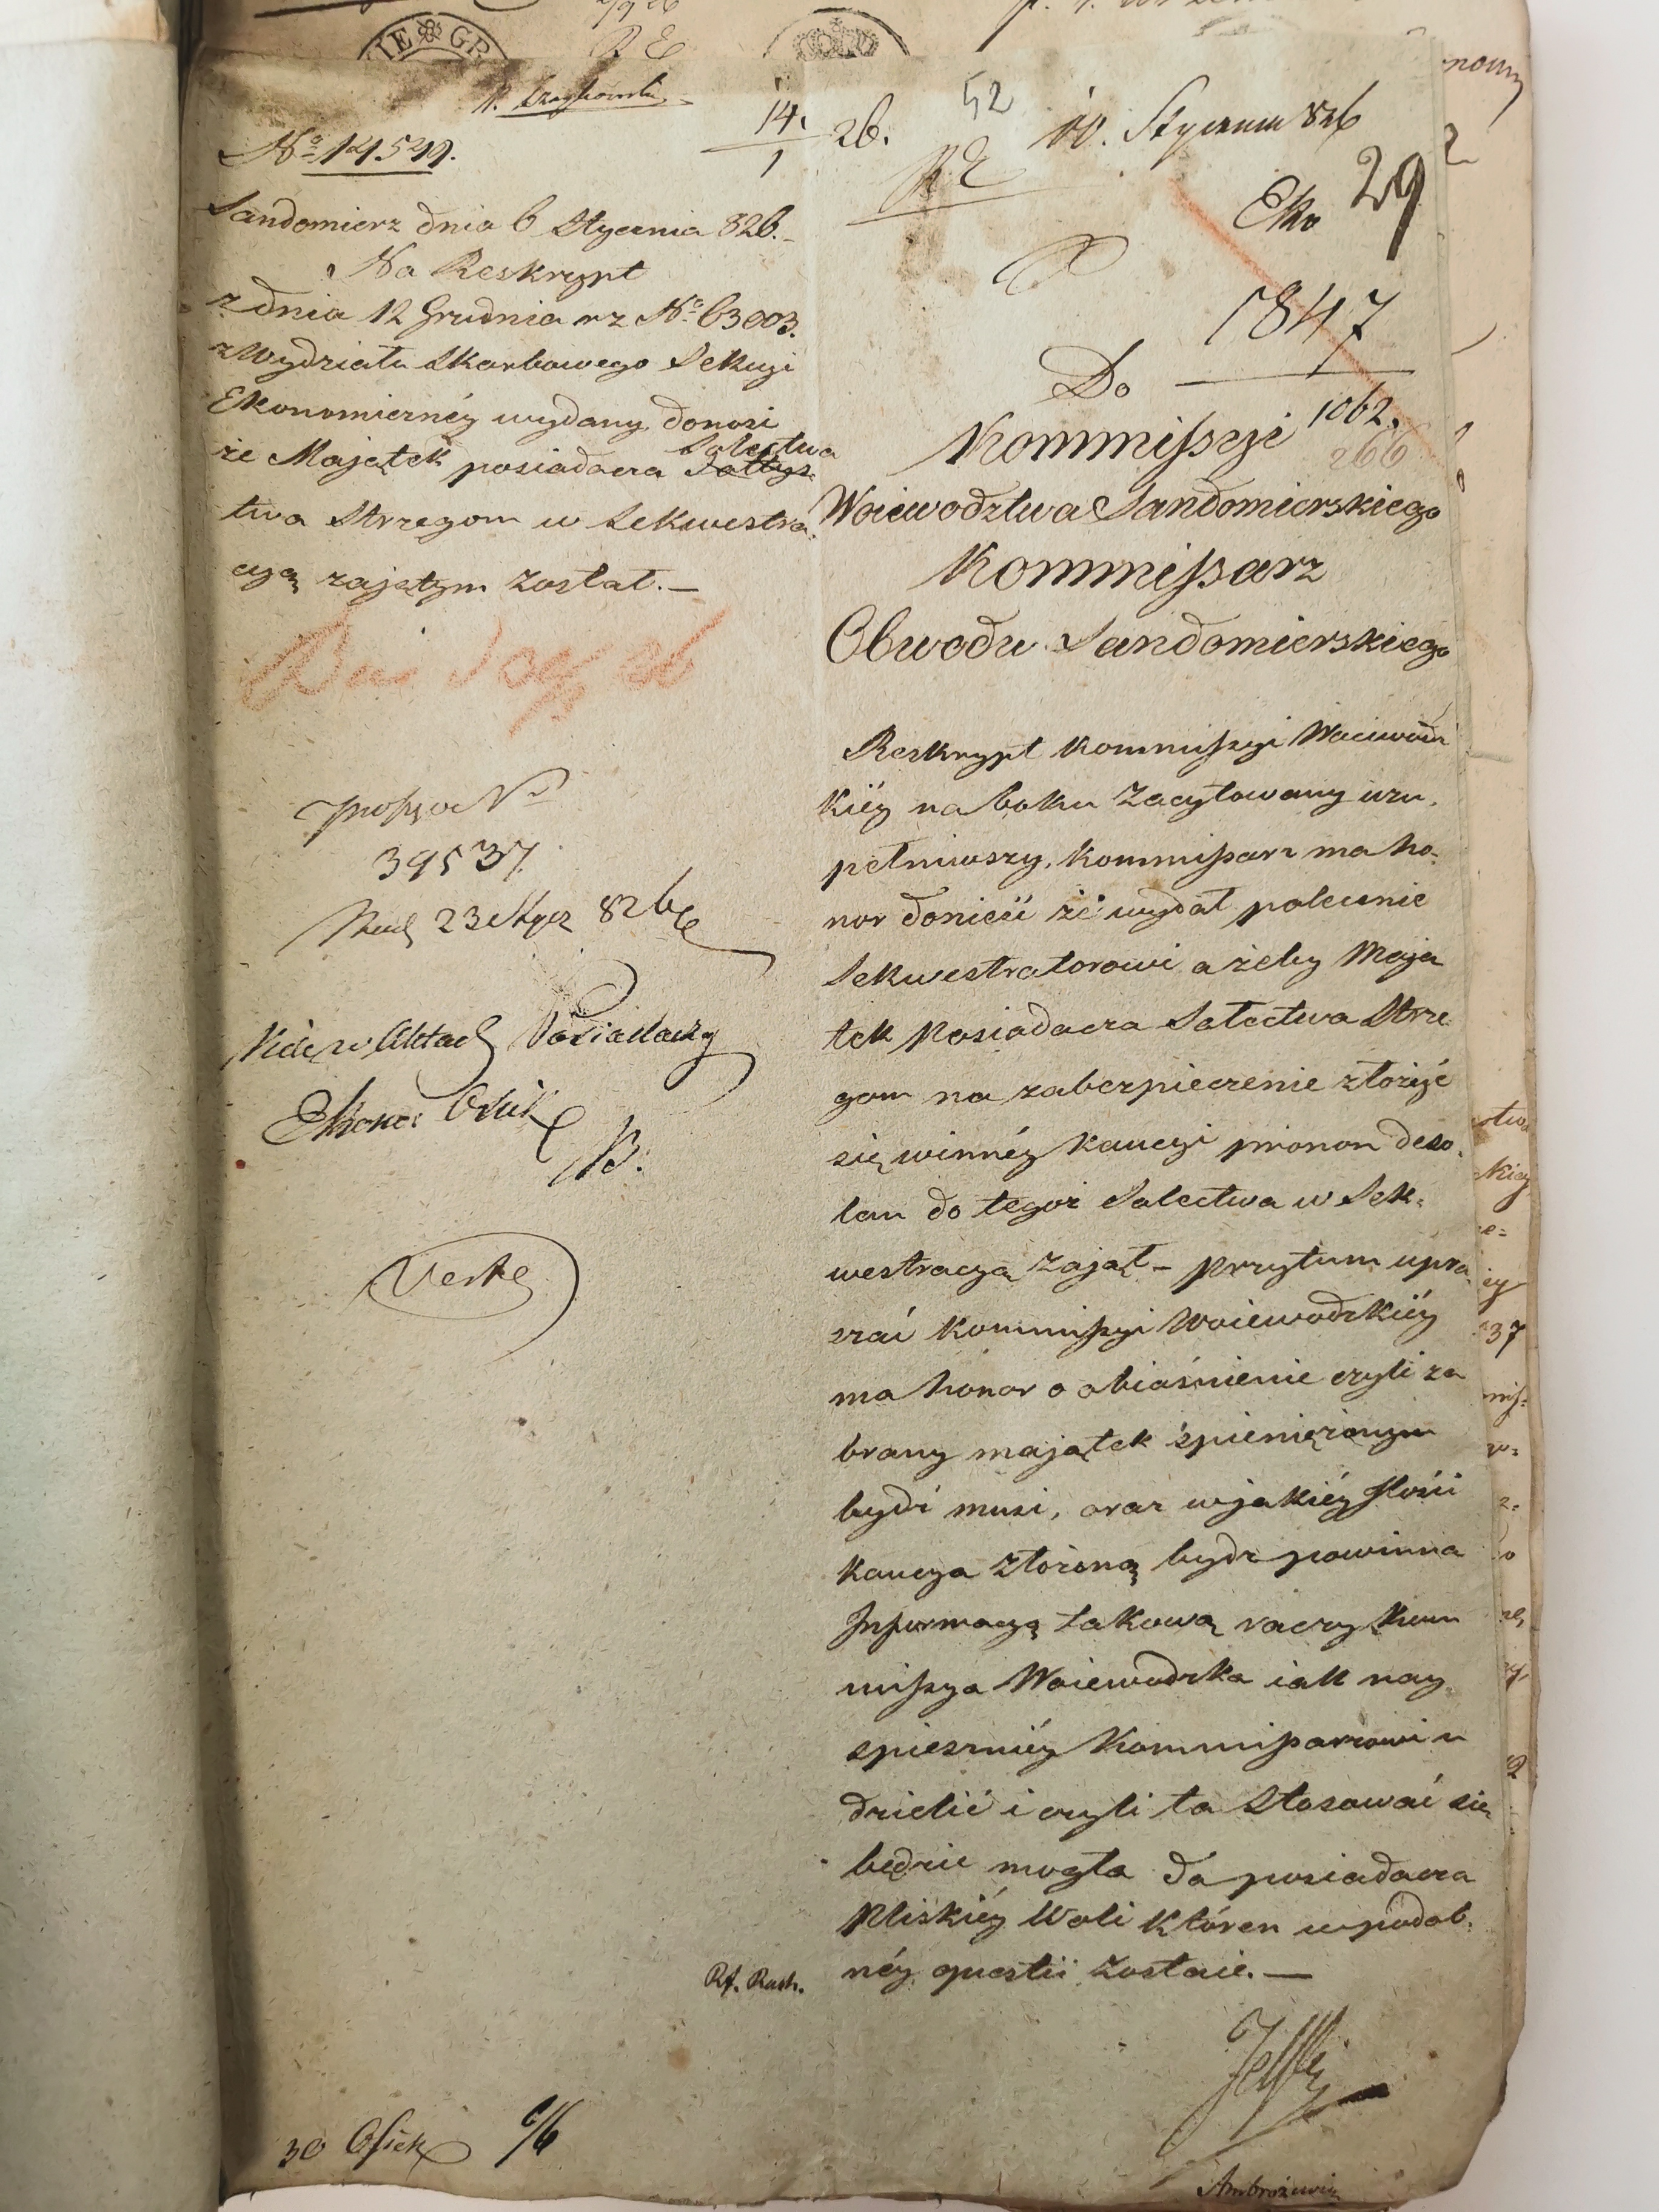 IE GR
№ 14549.
14.
1
26.
52
10. Stycznia 826
RE
Eko
29
Sandomierz dnia 6 Stycznia 826.
Na Reskrypt
z dnia 12 Grudnia rz № 63003.
z Wydziału Skarbowego Sekcyi
Ekonomicznéy wydany donosi
że Majątek posiadacza Sołtys Solectwa
twa Strzegom w Sekwestra
cyą zajętym został.—
39537.
23 Stycz 826
Vide w Aktach Posiadaczy
Ekonoi Osiek
Verte
Rf. Rask.
30 Osiek 6/6
1847
1062.
266
Do
Kommissyi
Woiewodztwa Sandomierskiego
Kommissarz
Obwodu Sandomierskiego
Reskrypt Kommissyi Woiewodz
kiéy na boku zacytowany uzu,
pełniwszy, Kommissarz ma ho-
nor donieść że wydał polecenie
Sekwestratorowi ażeby Mają
tek Posiadacza Sołectwa Strze
gom na zabezpieczenie złożyć
się winnéy kaucyi pronon deso,
lan do tegoż Solectwa w Sek=
westracyą zajął – przytem upra
szać Kommissyi Woiewodzkiéy
ma honor o obiaśnienie czyli za
brany majątek śpieniężonym
bydź musi, oraz w jakiéy Ilości
kaucya złożoną bydz powinna
Informacyą takową raczy Kom
missya Woiewodzka iak nay
spieszniéy Kommissarzowi u
dzielić i czyli ta Stosować się
będzie mogła do posiadacza
Pliskiéy Woli któren w podob.
néy questii zostaie.—
Ambrożewicz